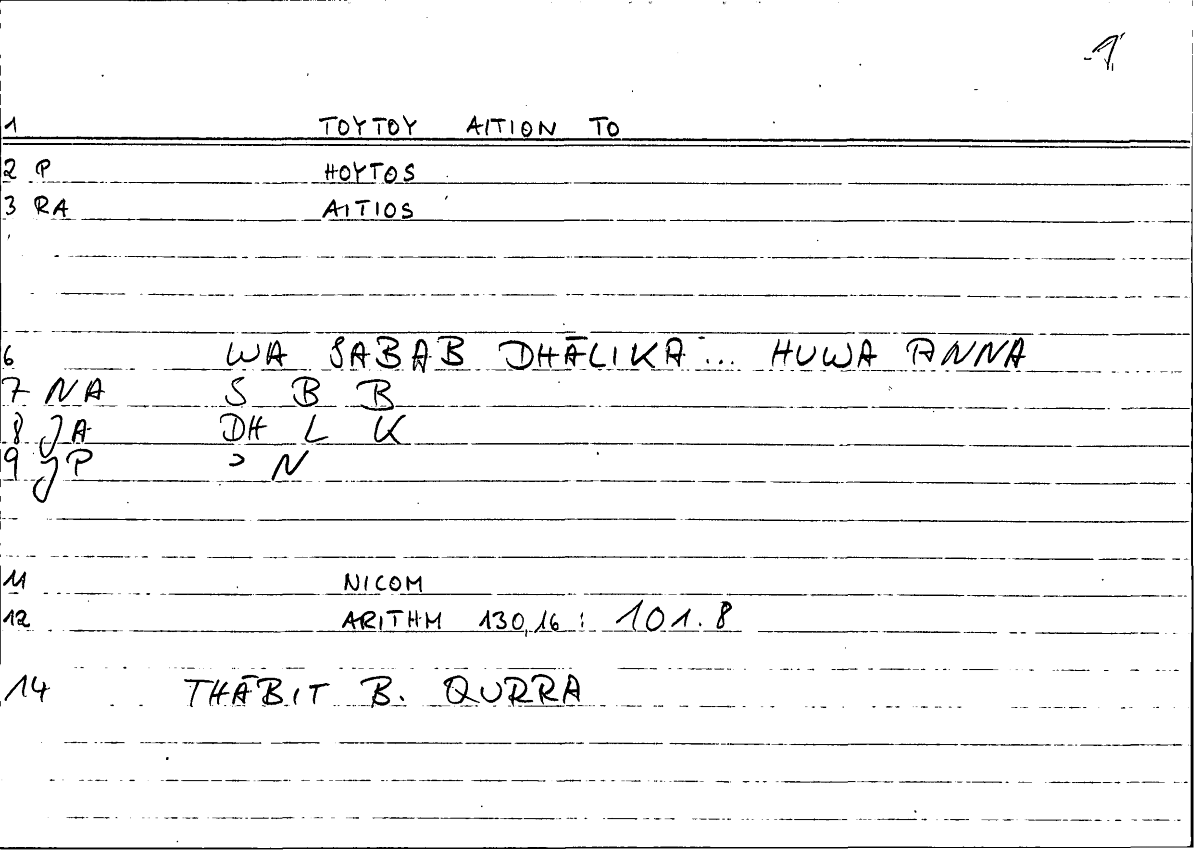 1
1 TOYTOY AITION TO
2 P HOYTOS
3 RA AITIOS
6 WA SABAB DHĀLIKA ... HUWA ANNA
7 NA S B B
8 JA DH L K
9 JP ɔ N
11 NICOM
12 ARITHM 130,16 : 101.8
14 THĀBIT B. QURRA